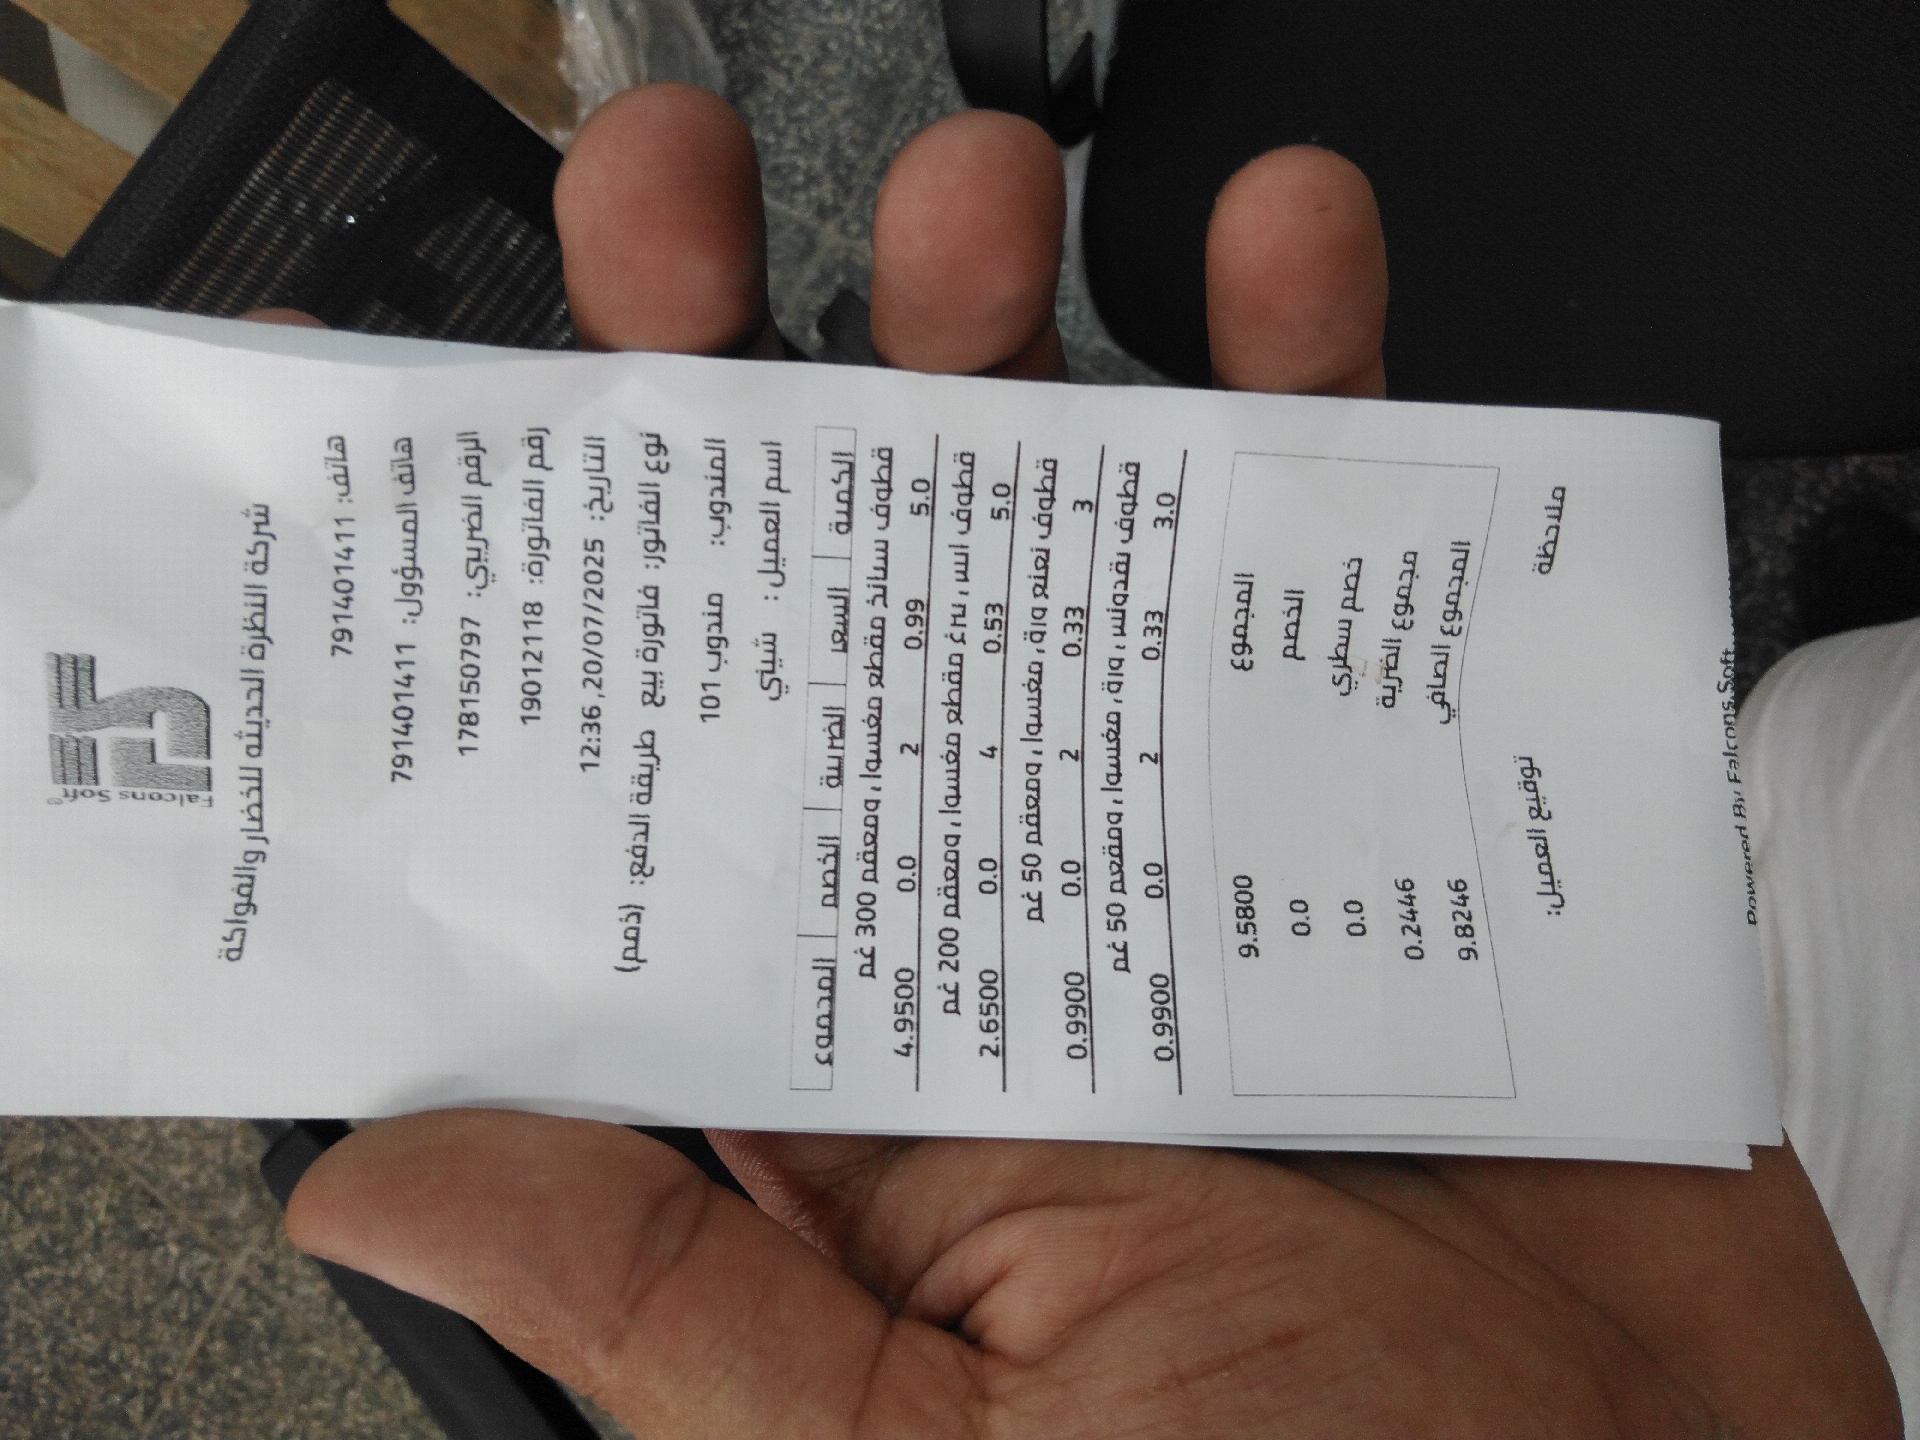 Falcons Soft®
شركة النظرة الحديثه للخضار والفواكة
هاتف: 791401411
هاتف المسؤول: 791401411
الرقم الضريبي: 178150797
رقم الفاتورة: 19012118
التاريخ: 20/07/2025, 12:36
نوع الفاتور: فاتورة بيع طريقة الدفع: (ذمم)
المندوب: مندوب 101
اسم العميل : شيني
الكمية السعر الضريبة الخصم المجموع
قطوف سبانخ مقطع مغسول ومعقم 300 غم
5.0 0.99 2 0.0 4.9500
قطوف مقطع مغسول ومعقم 200 غم
5.0 0.53 4 0.0 2.6500
قطوف نعنع ورق مغسول ومعقم 50 غم
3 0.33 2 0.0 0.9900
قطوف بقدونس ورق مغسول ومقعم 50 غم
3.0 0.33 2 0.0 0.9900
المجموع 9.5800
الخصم 0.0
خصم سطري 0.0
مجموع الضريبة 0.2446
المجموع الصافي 9.8246
ملاحظة
توقيع العميل:
Powered By Falcons Soft